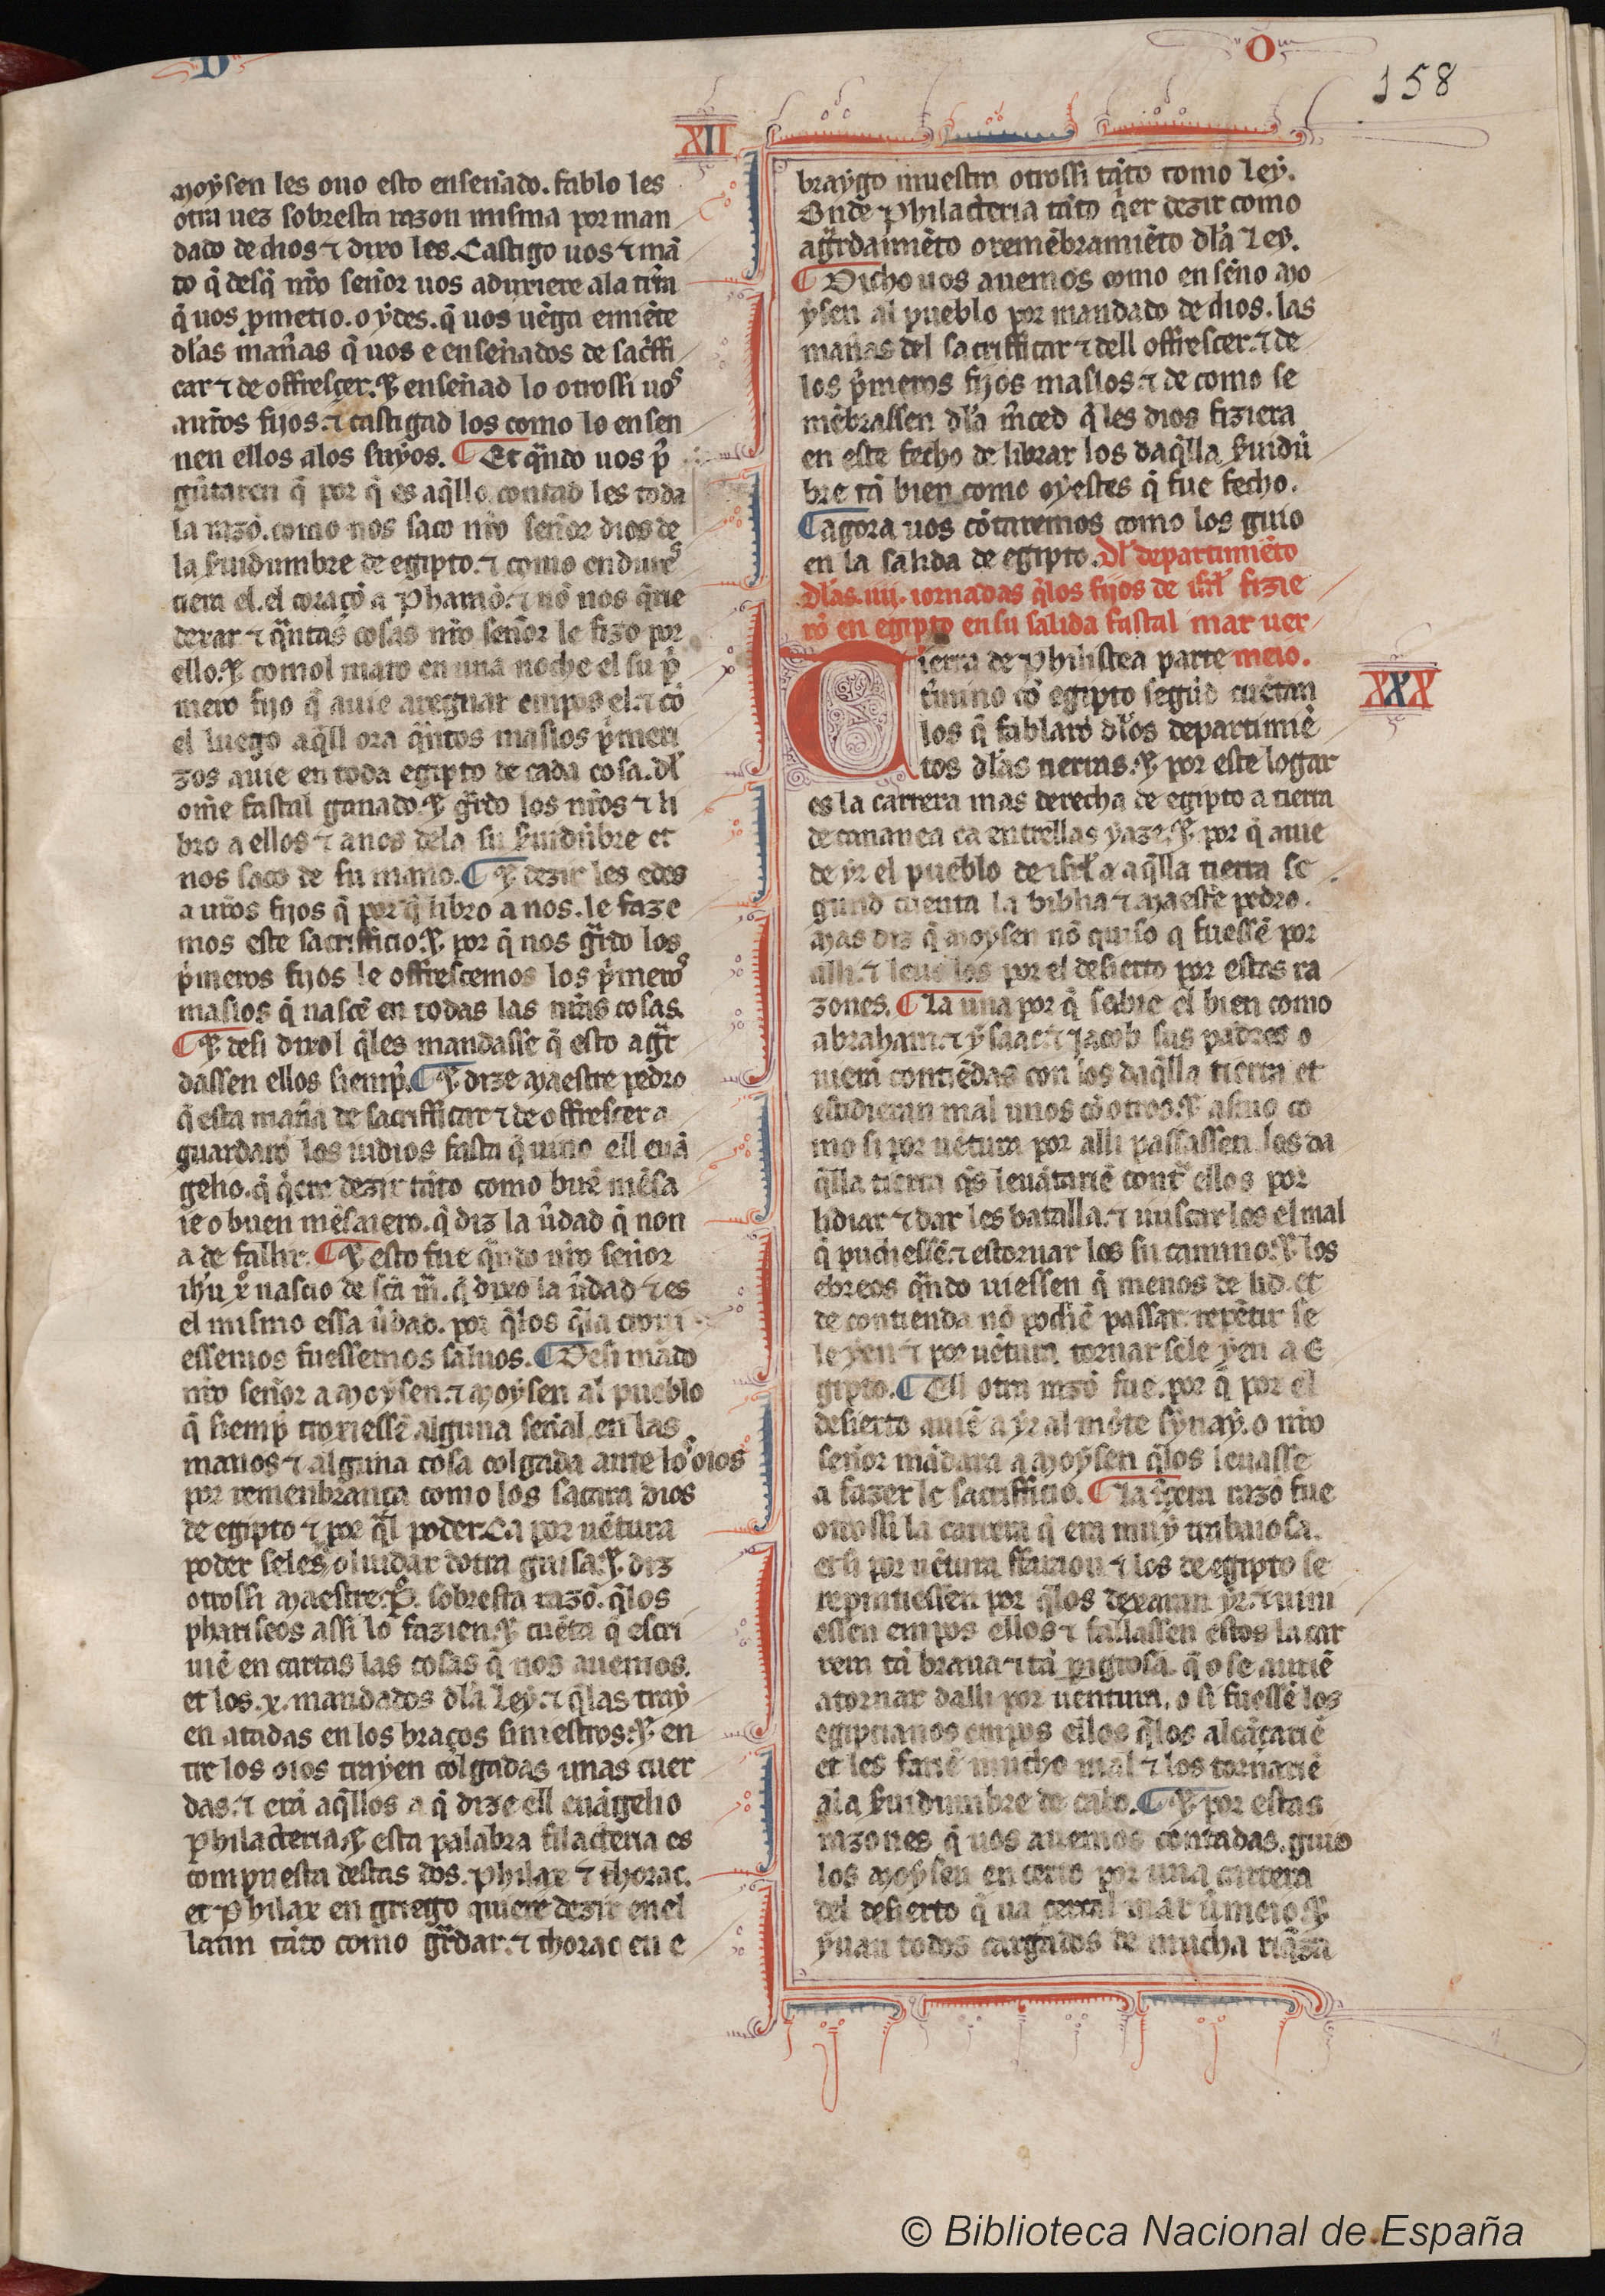 O
158
XII
Moysen les ouo esto ensenado. fablo les
otra uez sobresta razon misma por man
dado de dios ⁊ dixo les. Castigo uos ⁊ mã
do q̃ desq̃ nr̃o señor uos aduxiere ala tr̃ra
q̃ uos ꝓmetio. oydes. q̃ uos uẽga emiẽte
dlas mañas q̃ uos e enseñados de sac̃ffi
car ⁊ de offresçer. Et enseñad lo otrossi uos
a ur̃os fijos. ⁊ castigad los como lo ensen
nen ellos alos suyos. ¶ Et qñdo uos p̃
gũtaren q̃ por q̃ es aq̃llo. contad les toda
la razõ. como nos saco nr̃o señor dios de
la s̃uidumbre de egipto. ⁊ como enduresˢ
ciera el. el coraçõ a Pharaõ. ⁊ nõ nos q̃rie
dexar ⁊ qñtas cosas nr̃o señor le fizo por
ello. Et comol mato en una noche el su p̃
mero fijo q̃ auie aregnar empos el. ⁊ cõ
el luego aq̃ll ora qñtos maslos p̃meri
zos auie en toda egipto de cada cosa. dl
om̃e fastal ganado. Et gr̃do los nr̃os ⁊ li
bro a ellos ⁊ a nos dela su s̃uidũbre et
nos saco de su mano. ¶ Et dezir les edes
a ur̃os fijos q̃ por q̃ libro a nos. le faze
mos este sacrifficio. Et por q̃ nos gr̃do los
p̃meros fijos le offrescemos los p̃meros
maslos q̃ nascẽ en todas las nr̃as cosas.
¶ Et desi dixol q̃les mandasse q̃ esto agr̃
dassen ellos siemp̃. ¶ Et dize Maestre pedro
q̃ esta maña de sacrifficar ⁊ de offrescer a
guardarõ los iudios fasta q̃ uino ell euã
gelio. q̃ q̃ere dezir tãto como buẽ mẽsa
ie o buen mẽsaiero. q̃ diz la ũdad q̃ non
a de fallir. ¶ Et esto fue qñdo nr̃o señor
ihũ xp̃o nascio de sc̃a m̃. q̃ dixo la ũdad ⁊ es
el mismo essa ũdad. por q̃los q̃la croui
essemos fuessemos saluos. ¶ Desi mãdo
nr̃o señor a Moysen. ⁊ Moysen al pueblo
q̃ siemp̃ troxiessẽ alguna señal en las
manos ⁊ alguna cosa colgada ante los oios
por remenbrança como los sacara dios
de egipto ⁊ por q̃l poder. Ca por uẽtura
poder seles ye oluidar dotra guisa. Et diz
otrossi Maestre. P. sobresta razõ. q̃los
phariseos assi lo fazien. Et cuẽta q̃ escri
uiẽ en cartas las cosas q̃ nos auemos.
et los .x. mandados dla Ley. ⁊ q̃las tray
en atadas en los braços siniestros. Et en
tre los oios trayen colgadas unas cuer
das. ⁊ erã aq̃llos a q̃ dize ell euãgelio
Philacteria. Et esta palabra filacteria es
compuesta destas dos. Philax ⁊ thorac.
et Philax en griego quiere dezir en el
latin tãto como gr̃dar. ⁊ thorac en e
braygo muestra otrossi tãto como Ley.
Onde Philacteria tãto q̃er dezir como
agr̃damiẽto o remẽbramiẽto dla Ley.
¶ Dicho uos auemos como enseño Mo
ysen al pueblo por mandado de dios. las
mañas del sacrifficar ⁊ dell offrescer. ⁊ de
los p̃meros fijos maslos. ⁊ de como se
mẽbrassen dla m̃ced q̃ les dios fiziera
en este fecho de librar los daq̃lla s̃uidũ
bre tã bien como oyestes q̃ fue fecho.
¶ agora uos cõtaremos como los guio
en la salida de egipto. Dl departimiẽto
dlas .iiij. iornadas q̃los fijos de isrl̃ fizie
rõ en egipto en su salida fastal mar uer
meio.
XXX
Tierra de Philistea parte
t̃mino cõ egipto segũd cuẽtan
los q̃ fablarõ dlos departimiẽ
tos dlas tierras. Et por este logar
es la carrera mas derecha de egipto a tierra
de cananea ca entrellas yaze. Et por q̃ auie
de yr el pueblo de isrl̃ a aq̃lla tierra se
gund cuenta la biblia ⁊ Maestre pedro.
Mas diz q̃ Moysen nõ quiso q̃ fuessẽ por
alli. ⁊ leuo los por el desierto por estas ra
zones. ¶ La una por q̃ sobre el bien como
abraham. ⁊ ysaac. ⁊ Jacob sus padres o
uierã contiẽdas con los daq̃lla tierra et
estudieran mal unos cõ otros. Et asmo co
mo si por uẽtura por alli passassen. los da
q̃lla tierra q̃s leuãtariẽ contra ellos por
lidiar ⁊ dar les batalla. ⁊ uuscar les el mal
q̃ pudiessẽ. ⁊ estoruar los su camino. Et los
ebreos qñdo uiessen q̃ menos de lid. et
de contienda nõ podiẽ passar. repẽtir se
le yen ⁊ por uẽtura tornar sele yen a E
gipto. ¶ Ell otra razõ fue. por q̃ por el
desierto auiẽ a yr al mõte synay. o nr̃o
señor mãdara a Moysen q̃los leuasse
a fazer le sacrifficio. ¶ La t̃cera razo fue
otrossi la carrera q̃ era muy trabaiosa.
et si por uẽtura faraon ⁊ los de egipto se
repintiessen por q̃los dexaran yr. ⁊ uini
essen empos ellos ⁊ fallassen estos la car
rera tã braua ⁊ tã pigrosa. q̃ o se auriẽ
atornar dalli por uentura. o si fuessẽ los
egiptianos empos ellos q̃los alcãçariẽ
et les fariẽ mucho mal ⁊ los tornariẽ
ala s̃uidumbre de cabo. ¶ Et por estas
razones q̃ uos auemos contadas. guio
los Moysen en cerco por una carrera
del desierto q̃ ua cercal mar ũmeio. Et
yuan todos cargados de mucha riq̃za
© Biblioteca Nacional de España